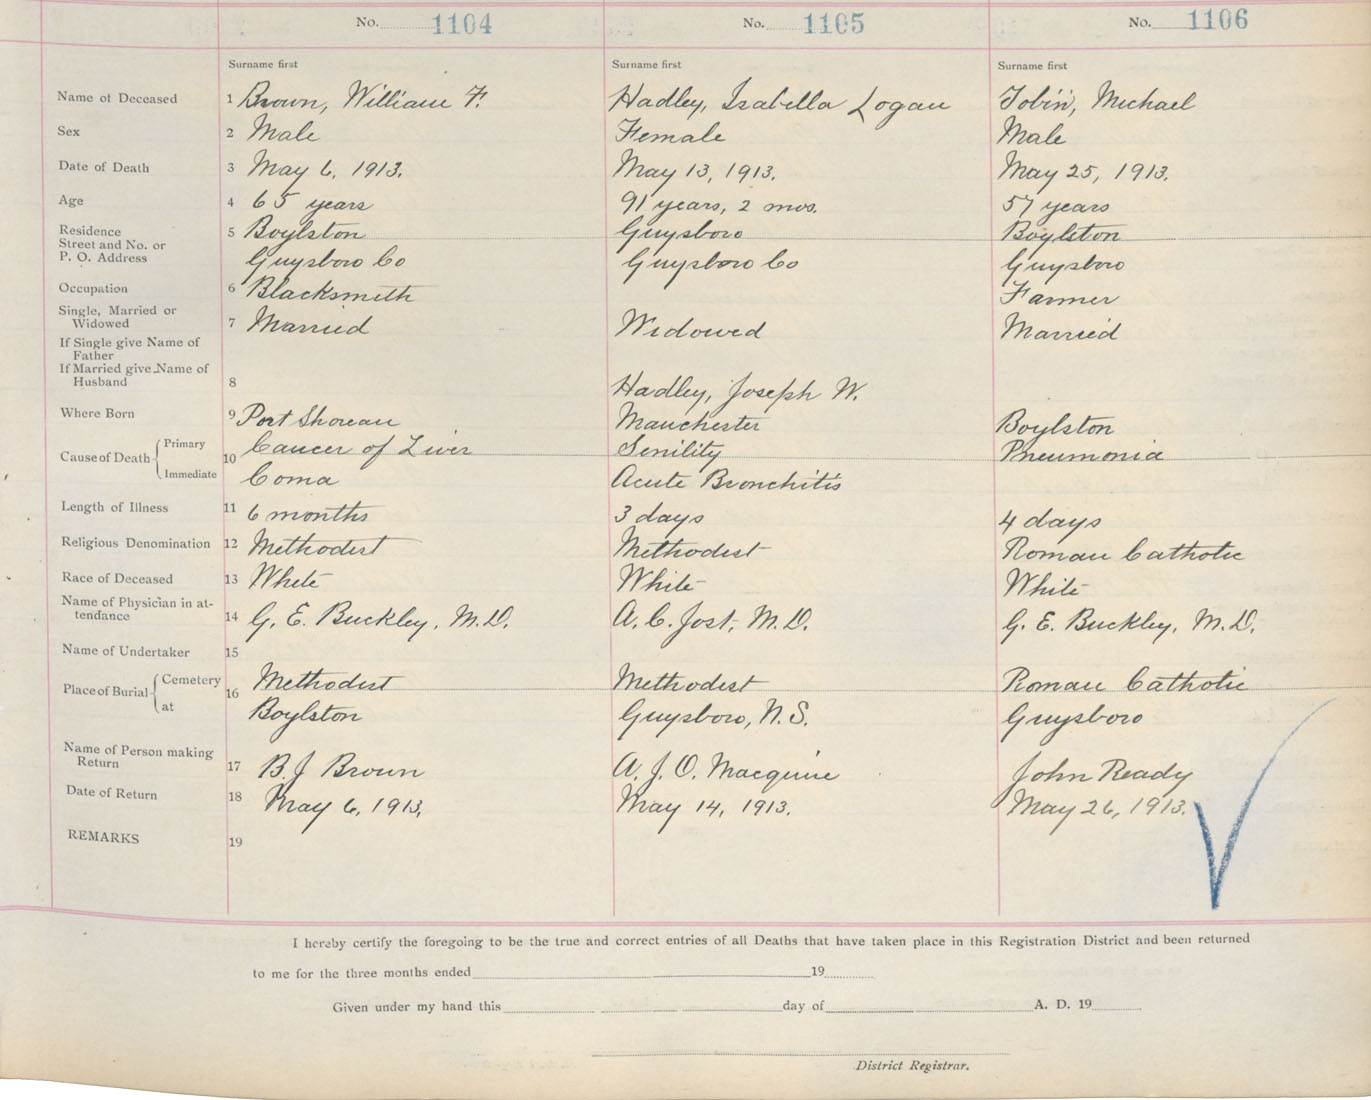 No. 1104 No. 1105 No. 1106
Surname first Surname first Surname first
Name of Deceased 1 Brown, William F. Hadley, Isabella Logan Tobin, Michael
Sex 2 Male Female Male
Date of Death 3 May 6, 1913. May 13, 1913. May 25, 1913.
Age 4 65 years 91 years, 2 mos. 57 years
Residence 5 Boylston Guysboro Boylston
Street and No. or
P. O. Address Guysboro Co Guysboro Co Guysboro
Occupation 6 Blacksmith Farmer
Single, Married or
Widowed 7 Married Widowed Married
If Single give Name of
Father
If Married give Name of
Husband 8 Hadley, Joseph W.
Where Born 9 Port Shoreau Manchester Boylston
Cause of Death Primary 10 Cancer of Liver Senility Pneumonia
Immediate Coma Acute Bronchitis
Length of Illness 11 6 months 3 days 4 days
Religious Denomination 12 Methodist Methodist Roman Catholic
Race of Deceased 13 White White White
Name of Physician in at-
tendance 14 G. E. Buckley, M.D. A. C. Jost, M.D. G. E. Buckley, M.D.
Name of Undertaker 15
Place of Burial Cemetery 16 Methodist Methodist Roman Catholic
at Boylston Guysboro, N.S. Guysboro
Name of Person making
Return 17 B. J Brown A. J. O. Macquire John Ready
Date of Return 18 May 6, 1913, May 14, 1913. May 26, 1913.
REMARKS 19
I hereby certify the foregoing to be the true and correct entries of all Deaths that have taken place in this Registration District and been returned
to me for the three months ended 19
Given under my hand this day of A. D. 19
District Registrar.